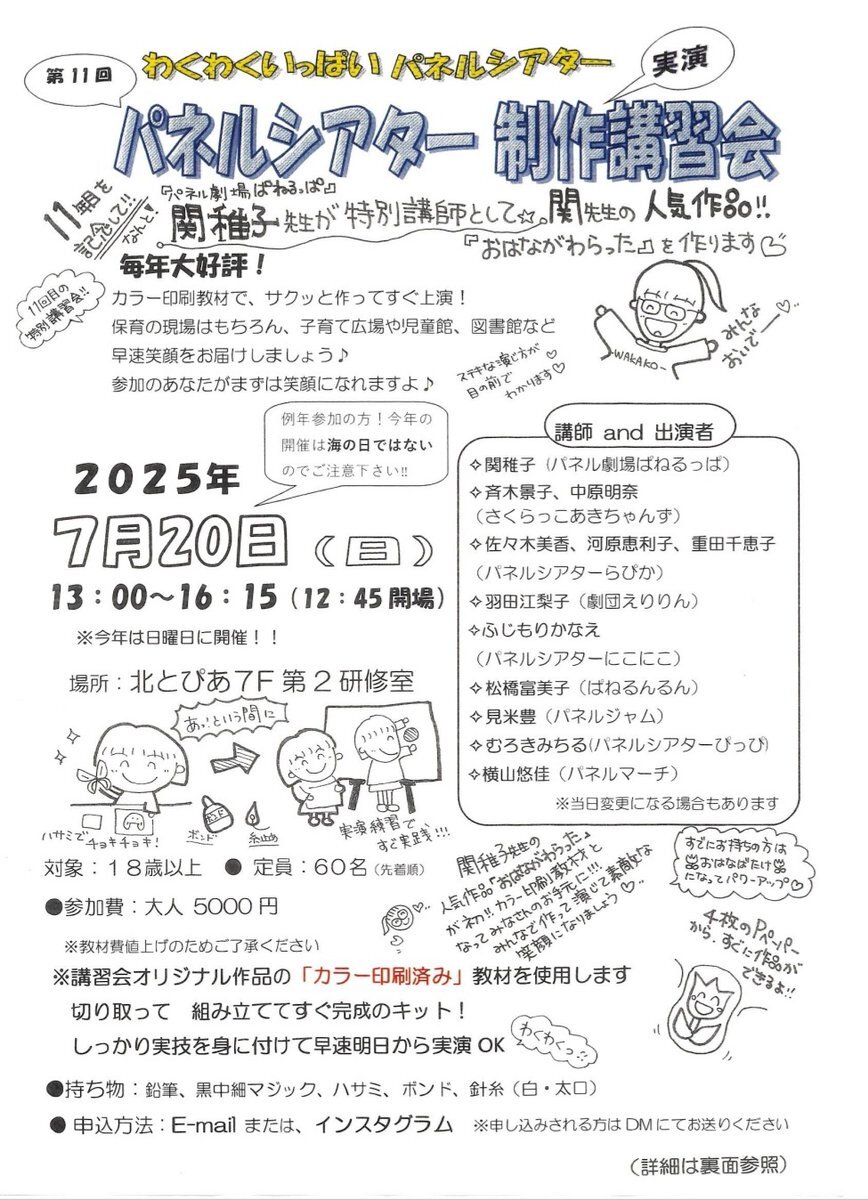 第11回
わくわくいっぱい パネルシアター
実演
パネルシアター 制作講習会
11年目を
記念して!!
なんと!
『パネル劇場ぱねるっぱ』
関稚子先生が特別講師として☆。関先生の人気作品!!
『おはながわらった』を作ります♡
毎年大好評！
11回目の
特別講習会!!
カラー印刷教材で、サクッと作ってすぐ上演！
保育の現場はもちろん、子育て広場や児童館、図書館など
早速笑顔をお届けしましょう♪
参加のあなたがまずは笑顔になれますよ♪
ステキな演じ方が
目の前で
わかります♡
-WAKAKO-
みんな
おいでー♡
例年参加の方！今年の
開催は海の日ではない
のでご注意下さい!!
2025年
7月20日（日）
13：00～16：15（12：45開場）
※今年は日曜日に開催！！
場所：北とぴあ7F 第2研修室
講師 and 出演者
✧関稚子（パネル劇場ぱねるっぱ）
✧斉木景子、中原明奈
（さくらっこあきちゃんず）
✧佐々木美香、河原恵利子、重田千恵子
（パネルシアターらぴか）
✧羽田江梨子（劇団えりりん）
✧ふじもりかなえ
（パネルシアターにこにこ）
✧松橋富美子（ぱねるんるん）
✧見米豊（パネルジャム）
✧むろきみちる(パネルシアターぴっぴ)
✧横山悠佳（パネルマーチ）
※当日変更になる場合もあります
あっ!という間に
ハサミで
チョキチョキ!
ボンド
糸止め
実演練習で、
すぐ実践!!!
対象：18歳以上 ● 定員：60名（先着順）
●参加費：大人 5000円
※教材費値上げのためご了承ください
関稚子先生の
人気作品『おはながわらった』
が初!!カラー印刷教材と
なってみなさんのお手元に!!!
みんなで作って演じて素敵な
笑顔になりましょう♡
すでにお持ちの方は
おはなばたけ
になってパワーアップ♡
4枚のPペーパー
から、すぐに作品が
できるよ!!
※講習会オリジナル作品の「カラー印刷済み」教材を使用します
切り取って 組み立ててすぐ完成のキット！
しっかり実技を身に付けて早速明日から実演OK
わくわくっ
●持ち物：鉛筆、黒中細マジック、ハサミ、ボンド、針糸（白・太口）
● 申込方法：E-mail または、インスタグラム ※申し込みされる方はDMにてお送りください
（詳細は裏面参照）